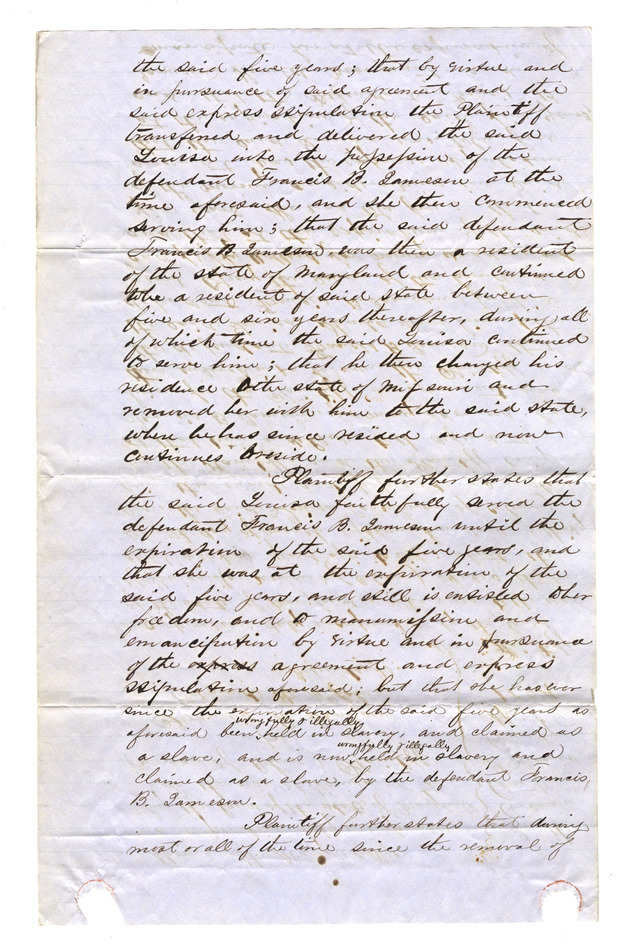 the said five years; that by virtue and
in pursuance of said agreement and the
said express stipulation the Plaintiff
transferred and delivered the said
Louisa into the possession of the
defendant Francis B. Jameson at the
time aforesaid, and she then commenced
serving him; that the said defendant
Francis B Jameson, was then a resident
of the state of Maryland and continued
to be a resident of said state between
five and six years thereafter, during all
of which time the said Louisa continued
to serve him; that he then changed his
residence to the state of Missouri and
removed her with him to the said state,
where he has since resided and now
continues to reside.
Plaintiff further states that
the said Louisa faithfully served the
defendant Francis B. Jameson until the
expiration of the said five years, and
that she was at the expiration of the
said five years, and still is entitled to her
freedom, and to manumission and
emancipation by virtue and in pursuance
of the express agreement and express
stipulation aforesaid; but that she has ever
since the expiration of the said five years as
wrongfully & illegally
aforesaid been held in slavery, and claimed as
wrongfully & illegally
a slave, and is now held in slavery and
claimed as a slave, by the defendant Francis
B. Jameson.
Plaintiff further states that during
most or all of the time since the removal of